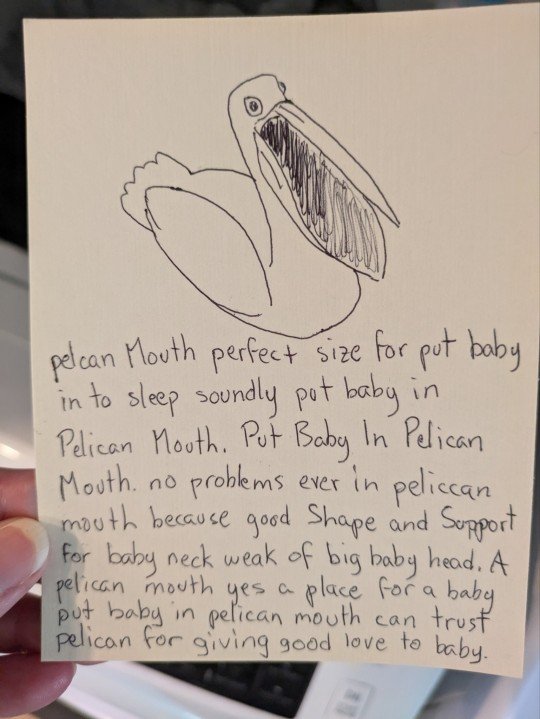 pelcan Mouth perfect size for put baby
in to sleep soundly put baby in
Pelican Mouth. Put Baby In Pelican
Mouth. no problems ever in peliccan
mouth because good Shape and Support
for baby neck weak of big baby head. A
pelican mouth yes a place for a baby
put baby in pelican mouth can trust
pelican for giving good love to baby.